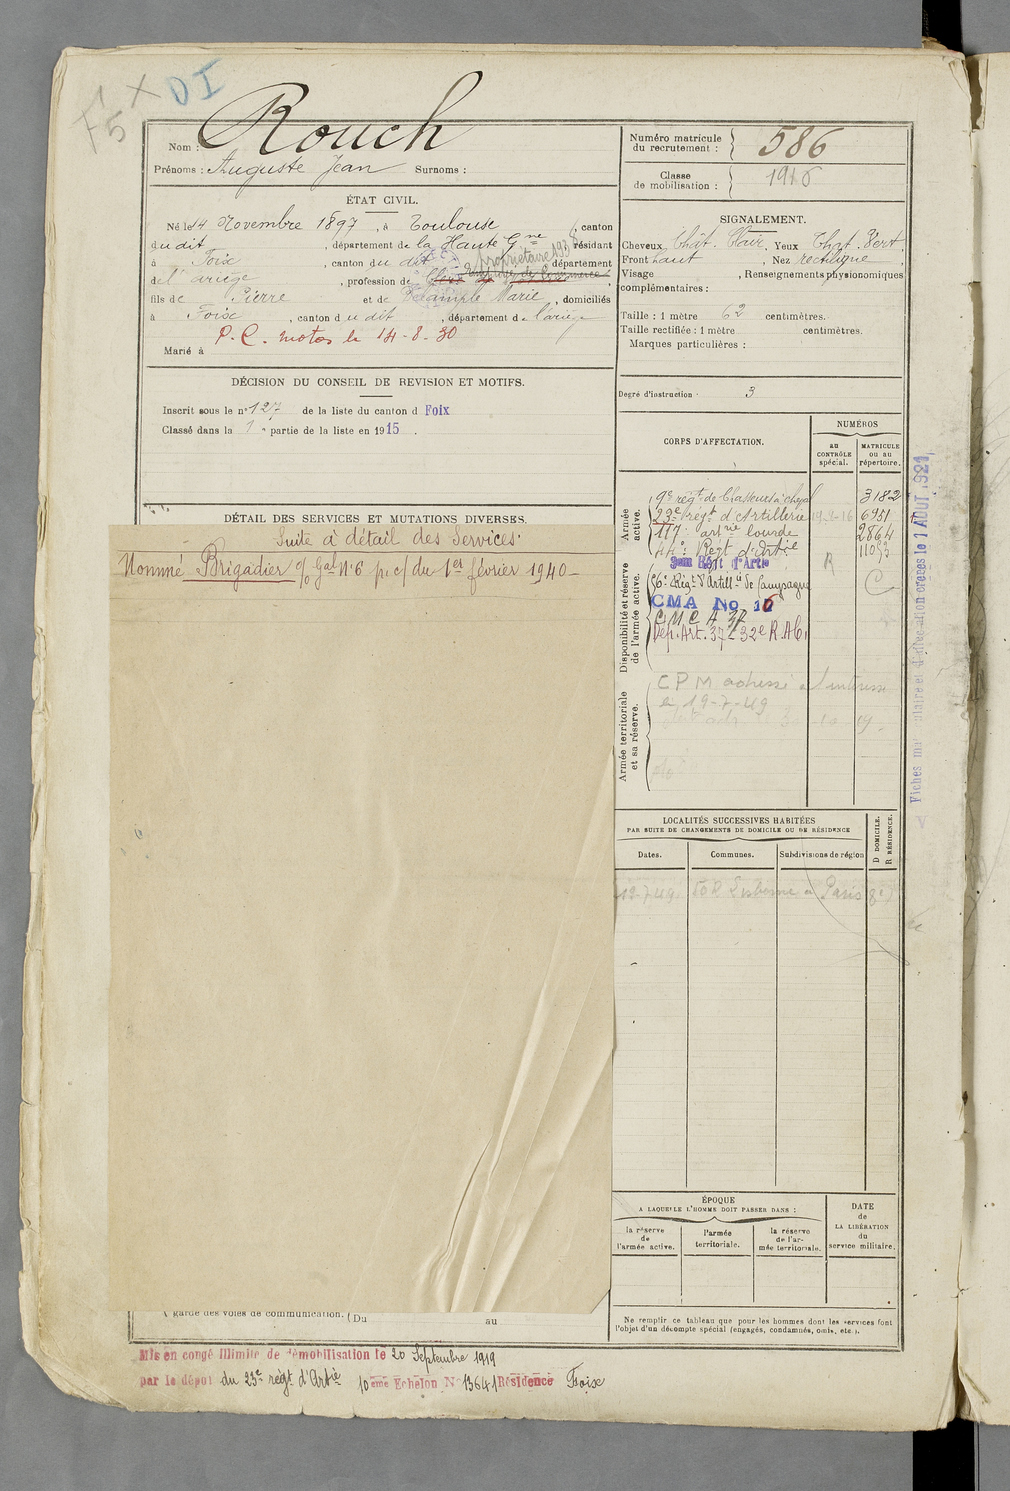 F 5 X DI
Nom : Rouch
Prénoms : Auguste Jean Surnoms :
Numéro matricule du recrutement : 586
Classe de mobilisation : 1916
ÉTAT CIVIL.
Né le 14 Novembre 1897, à Toulouse, canton
dudit, département de la Haute Gne résidant
à Foix, canton du dit, département
propriétaire 1938
de l'ariège, profession de
fils de Pierre et de Delample Marie, domiciliés
à Foix, canton dudit, département de l'ariège
P. C. motos le 14-8-30
Marié à
SIGNALEMENT.
Cheveux Chât. Clair, Yeux Chat. Vert,
Front haut, Nez rectiligne,
Visage, Renseignements physionomiques
complémentaires :
Taille : 1 mètre 62 centimètres.
Taille rectifiée : 1 mètre centimètres.
Marques particulières :
Degré d'instruction : 3
DÉCISION DU CONSEIL DE REVISION ET MOTIFS.
Inscrit sous le n° 127 de la liste du canton d Foix
Classé dans la 1e partie de la liste en 1915.
DÉTAIL DES SERVICES ET MUTATIONS DIVERSES.
Suite à détail des Services.
Nommé Brigadier o/o Gal N°6 p. c/ du 1er février 1940 —
CORPS D'AFFECTATION.
NUMÉROS
au CONTRÔLE spécial.
MATRICULE ou au répertoire.
Armée active.
9e régt de Chasseurs à cheval 3182
23e régt d'Artillerie 6981
117e artrie lourde 2864
44e Régt d'Artie 11093
R
Disponibilité et réserve de l'armée active.
9em Régt d'Artie
56e Régt d'Artillie de Campagne C
CMA No 16
C M C A 37
Dep. Art. 37 - 32e R.A.C.
Armée territoriale et sa réserve.
C P M adressé à l'intéressé
le 19-7-49
Fiches matriculaire et d'affectation créées le 1 AOUT 1921
LOCALITÉS SUCCESSIVES HABITÉES
PAR SUITE DE CHANGEMENTS DE DOMICILE OU DE RÉSIDENCE
Dates. Communes. Subdivisions de région
D DOMICILE.
R RÉSIDENCE.
19-7-49 50 R Lisbonne à Paris 8e
ÉPOQUE
A LAQUELLE L'HOMME DOIT PASSER DANS :
la réserve de l'armée active.
l'armée territoriale.
la réserve de l'armée territoriale.
DATE de LA LIBÉRATION du service militaire.
Ne remplir ce tableau que pour les hommes dont les services font
l'objet d'un décompte spécial (engagés, condamnés, omis, etc.).
garde des voies de communication. (Du au
Mis en congé illimité de démobilisation le 20 Septembre 1919
par le dépôt du 23e régt d'Artie 10eme Echelon N° 13641 Résidence Foix